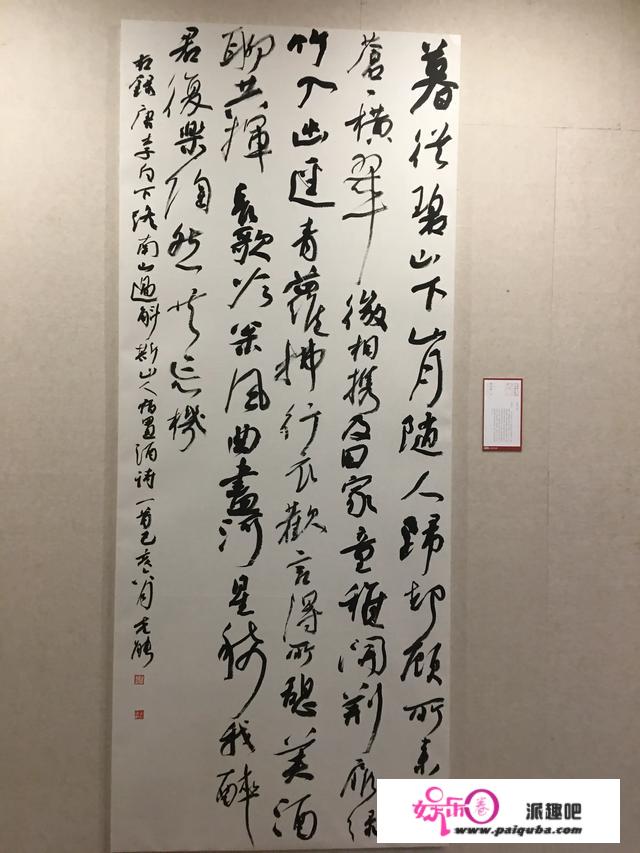 暮從碧山下山月隨人歸却顧所来
蒼〻橫翠微相携及田家童稚開荆扉緑
竹入幽逕青蘿拂行衣歡言得所憩美酒
聊共揮長歌吟枀風曲盡河星稀我醉
君復樂陶然共忘機
右録唐李白下終南山過斛斯山人宿置酒詩一首己亥八月
娱乐圈
派趣吧
www.paiquba.com